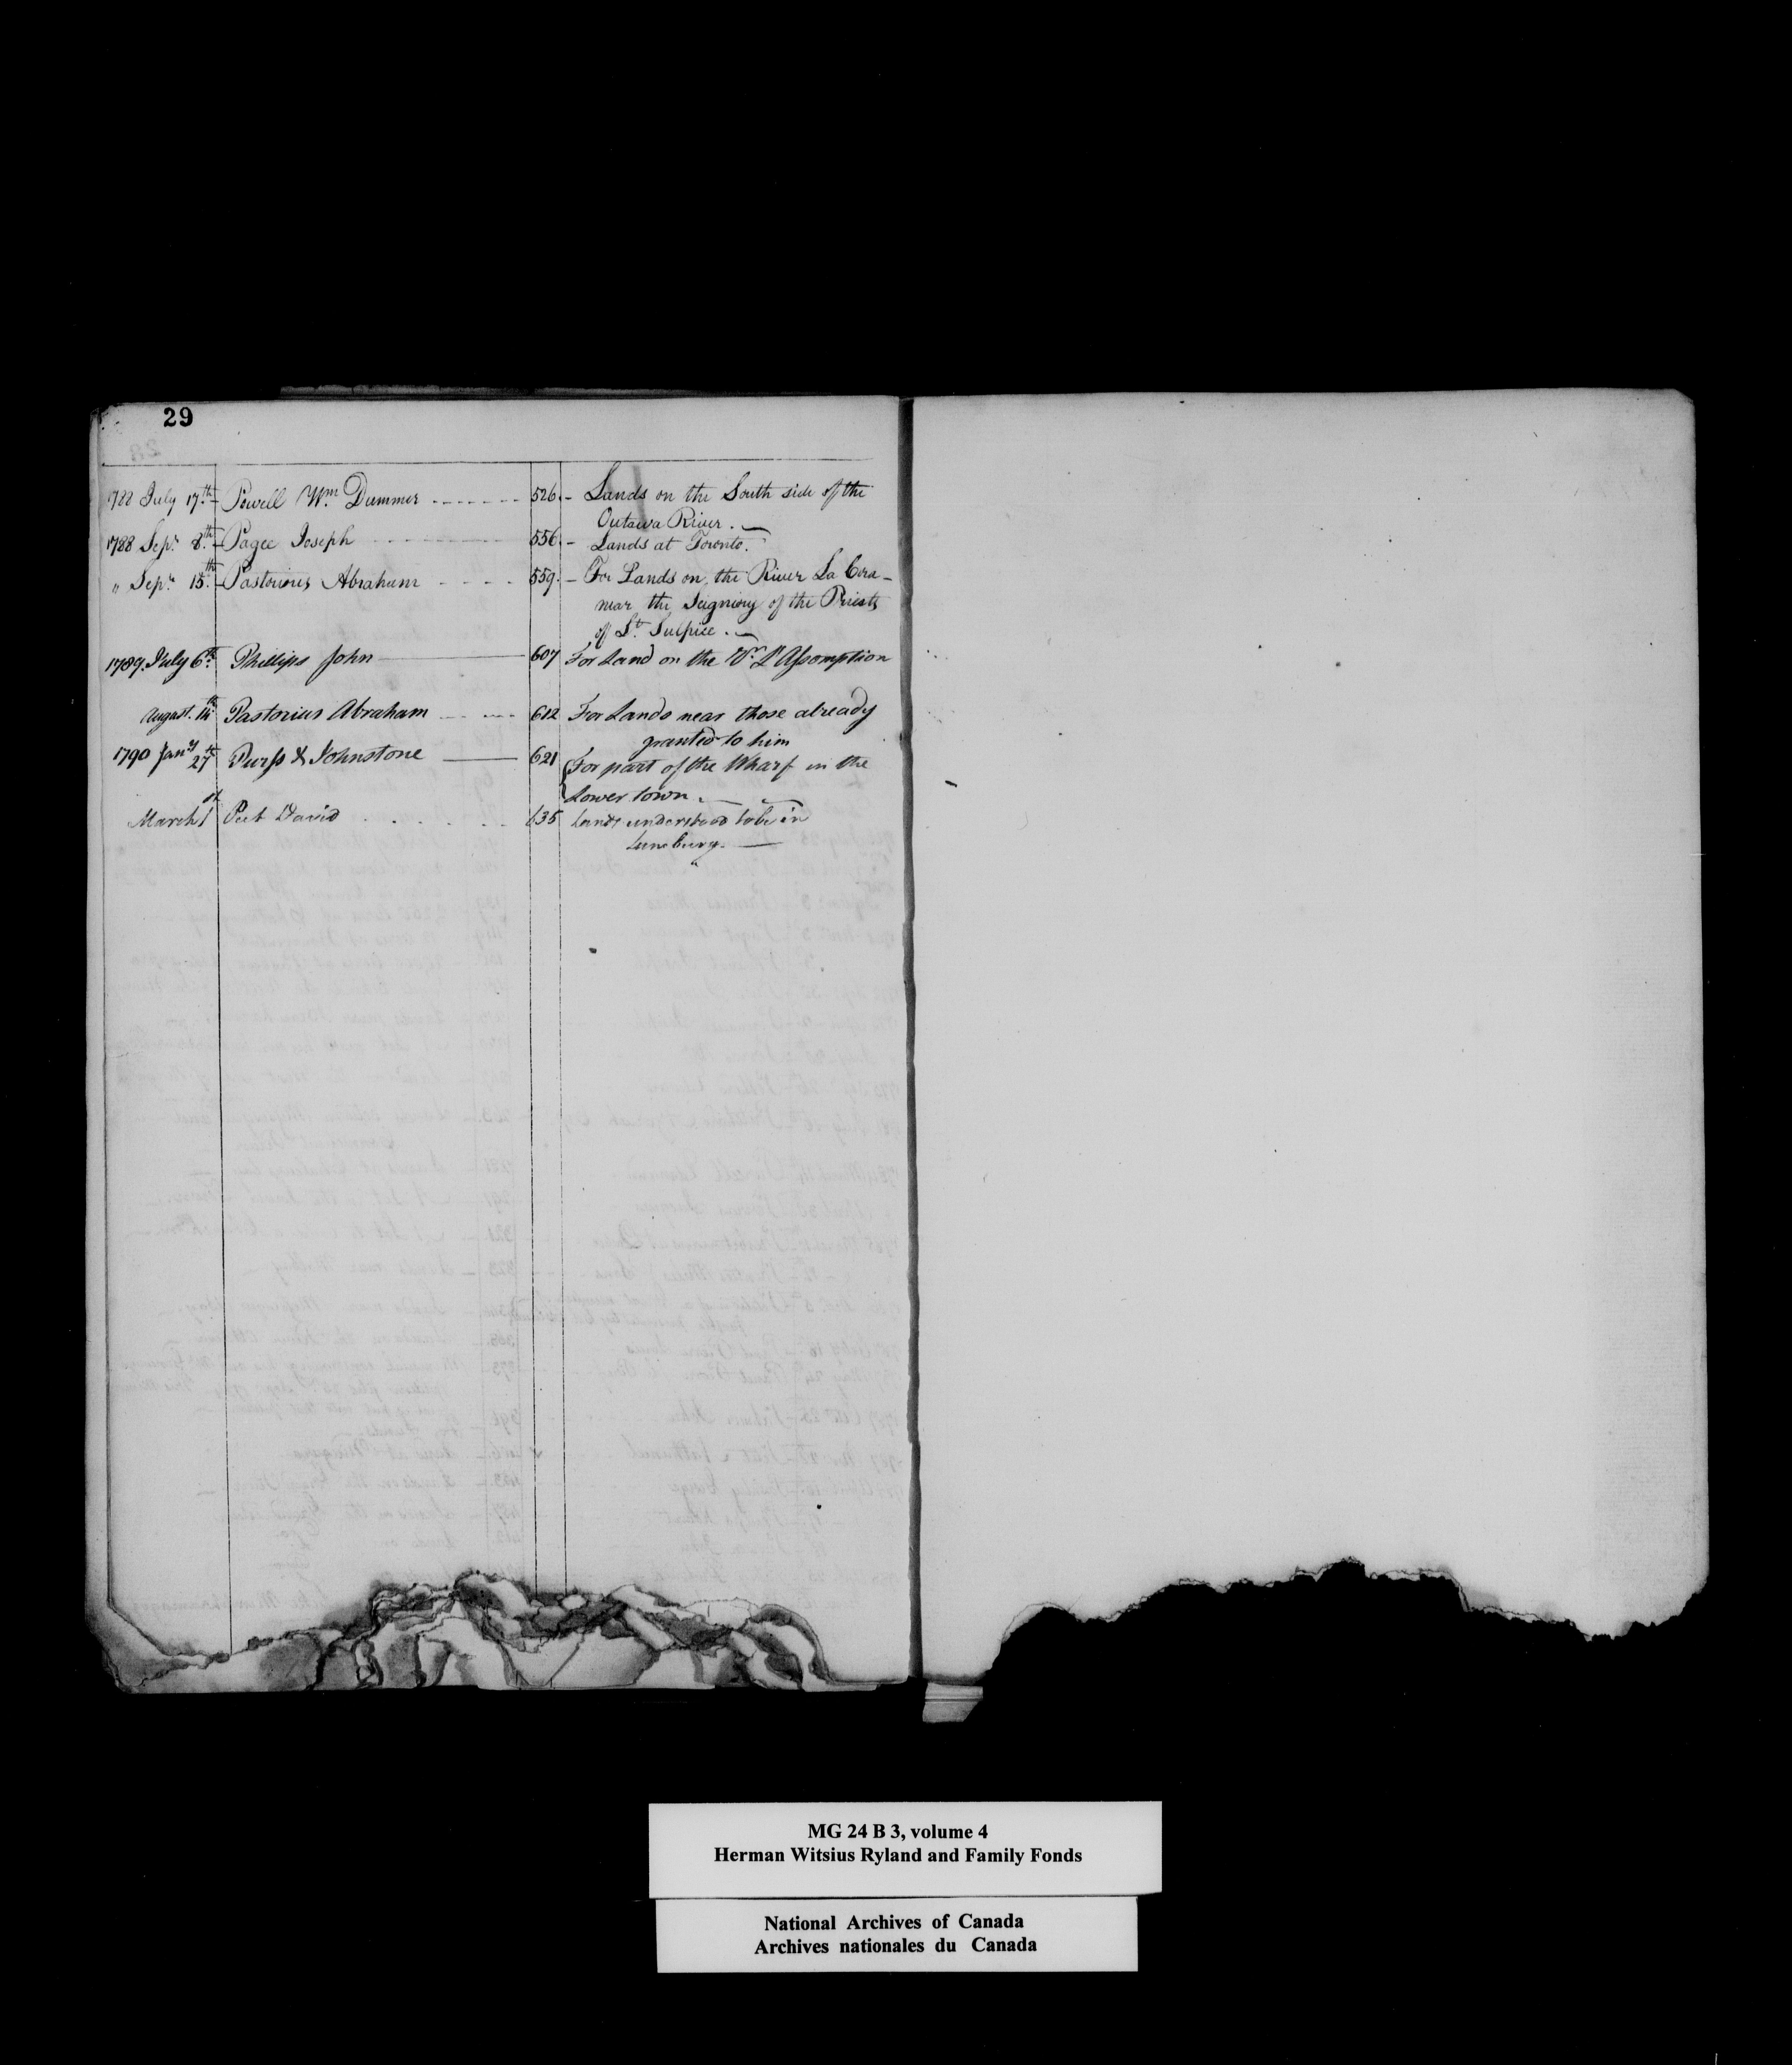 29
1788 July 17th - Powell Wm. Dummer - - - - - - - 526. - Lands on the South side of the
Outawa River. -
1788 Sepr. 8th - Pagee Joseph - - - - - - - 556 - Lands at Toronto.
" Sepr. 15th - Pastorious Abraham - - - - 559. - For Lands on the River La
near the Seigniory of the Priests
of St. Sulpice. -
1789. July 6th Phillips John - 607 For Land on the Rr. L'Assomption
August. 14th Pastorius Abraham - - - - 612 For Lands near those already
granted to him
1790 Jany 27th Purss & Johnstone - 621 For part of the Wharf in the
Lower town. -
March 1st Peet David . . . . . . . 635 Lands understood to be in
Luneburg. -
MG 24 B 3, volume 4
Herman Witsius Ryland and Family Fonds
National Archives of Canada
Archives nationales du Canada